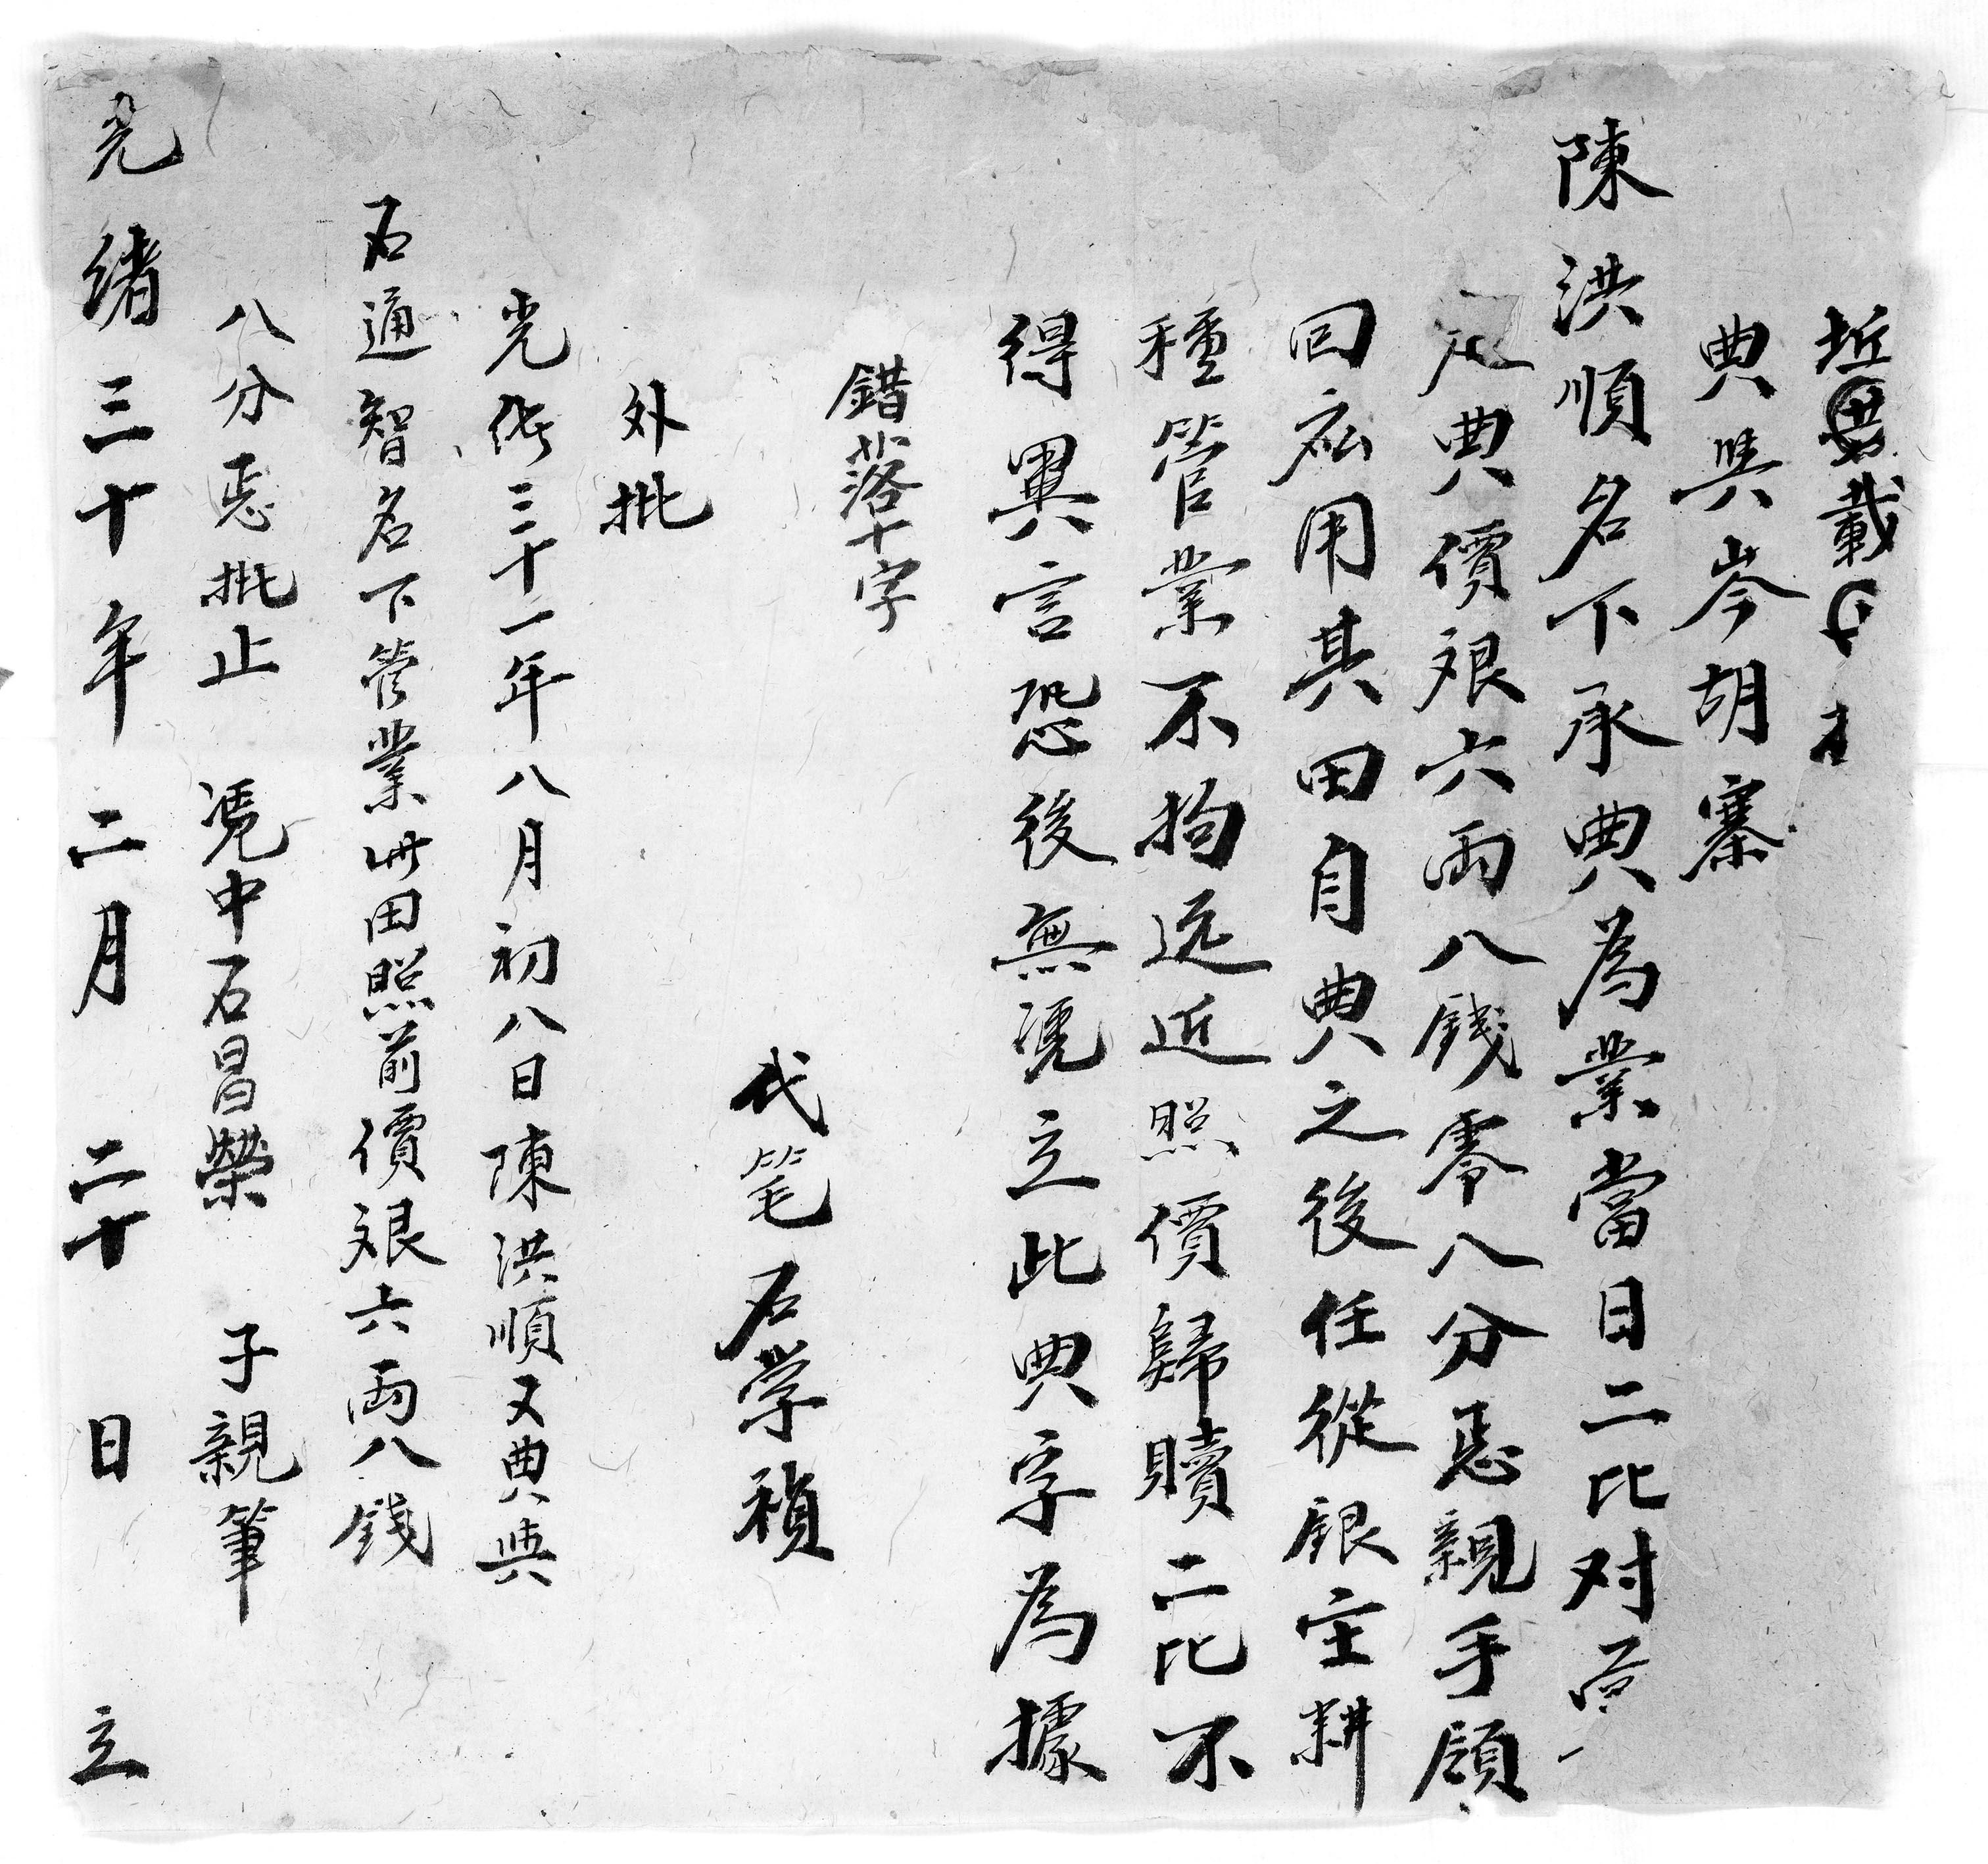 坵載
典與岑胡寨
陳洪順名下承典為業當日二比对
足典價艮六両八銭零八分㤙親手領
回応用其田自典之後任從銀主耕
種管業不拘远近照價歸贖二比不
得異言恐後無凴立此典字為據
錯落十字
代笔石学禎
外批
光绪三十一年八月初八日陳洪順又典與
石通智名下管業此田照前價艮六両八錢
八分㤙批止 凴中石昌榮 子親筆
光緒三十年二月二十日立